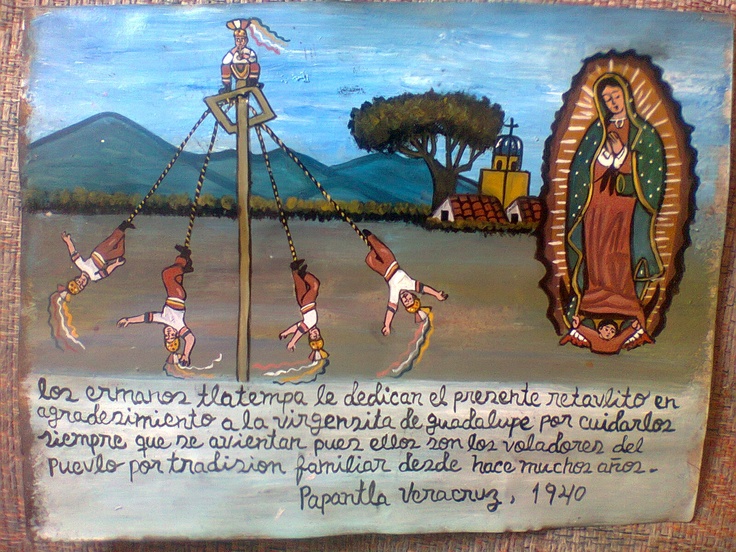 los ermanos tlatempa le dedican el presente retavlito en
agradesimiento a la virgensita de guadalupe por cuidarlos
siempre que se avientan pues ellos son los voladores del
puevlo por tradision familiar desde hace muchos años.
Papantla Veracruz, 1940